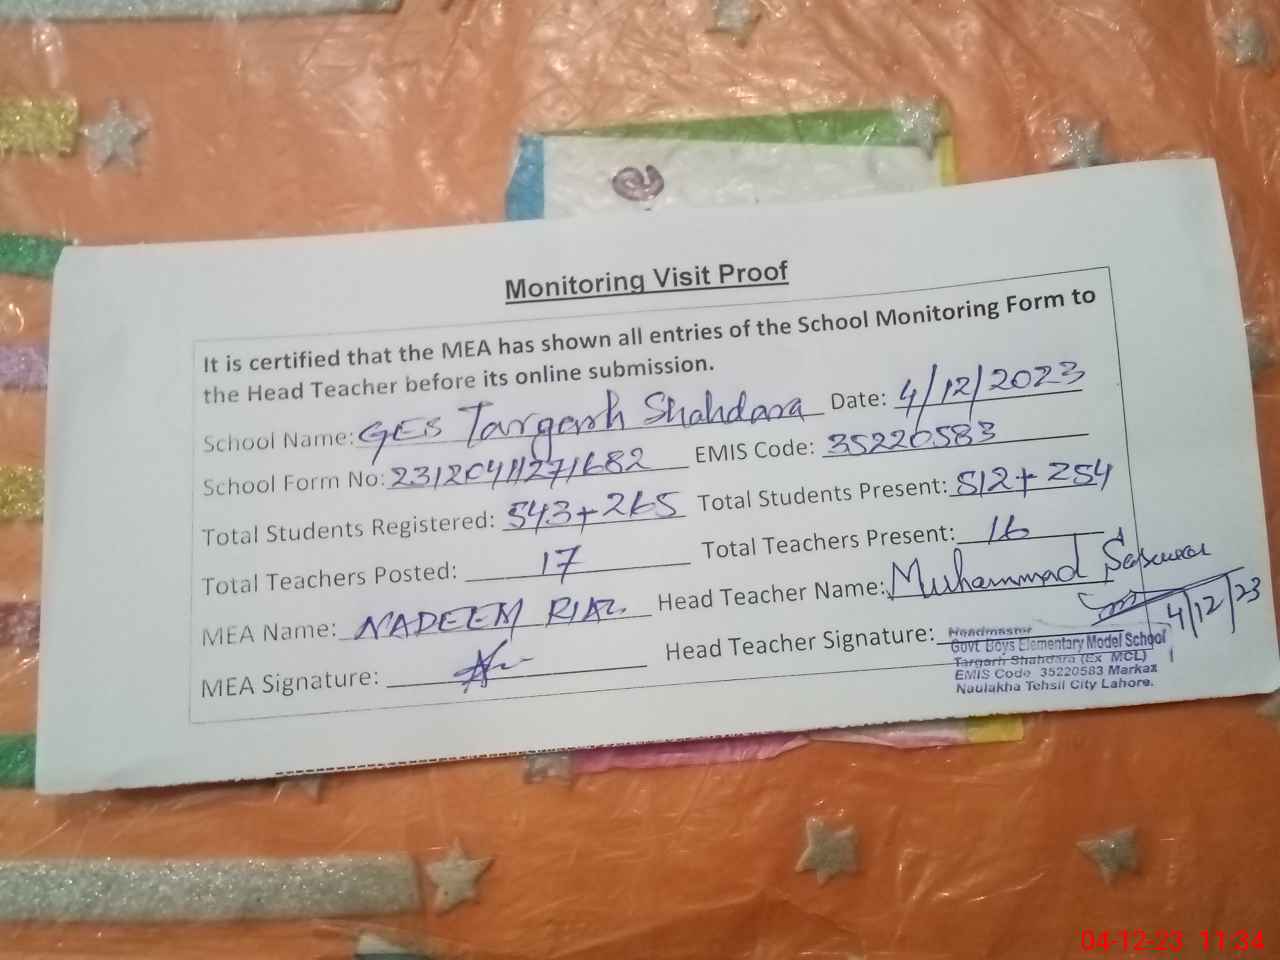 Monitoring Visit Proof
It is certified that the MEA has shown all entries of the School Monitoring Form to
the Head Teacher before its online submission.
School Name: GES Targarh Shahdara Date: 4/12/2023
School Form No: 23120411271682 EMIS Code: 35220583
Total Students Registered: 543+265 Total Students Present: 512+254
Total Teachers Posted: 17 Total Teachers Present: 16
MEA Name: NADEEM RIAZ Head Teacher Name: Muhammad
MEA Signature: Head Teacher Signature: 4/12/23
Headmaster
Govt Boys Elementary Model School
Targarh Shahdara (Ex MCL)
EMIS Code 35220583 Markaz
Naulakha Tehsil City Lahore.
04-12-23 11:34